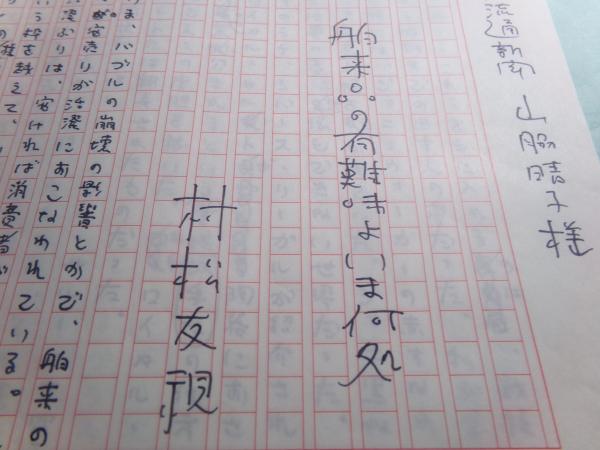 流通新聞 山脇晴子様
舶来品の有難さよいま何処
村松友視
ま、バブルの崩壊の影響とかで、舶来の
安売りが活溌におこなわれている。
ぶりは、安ければ消費者が
う枠を越えて、